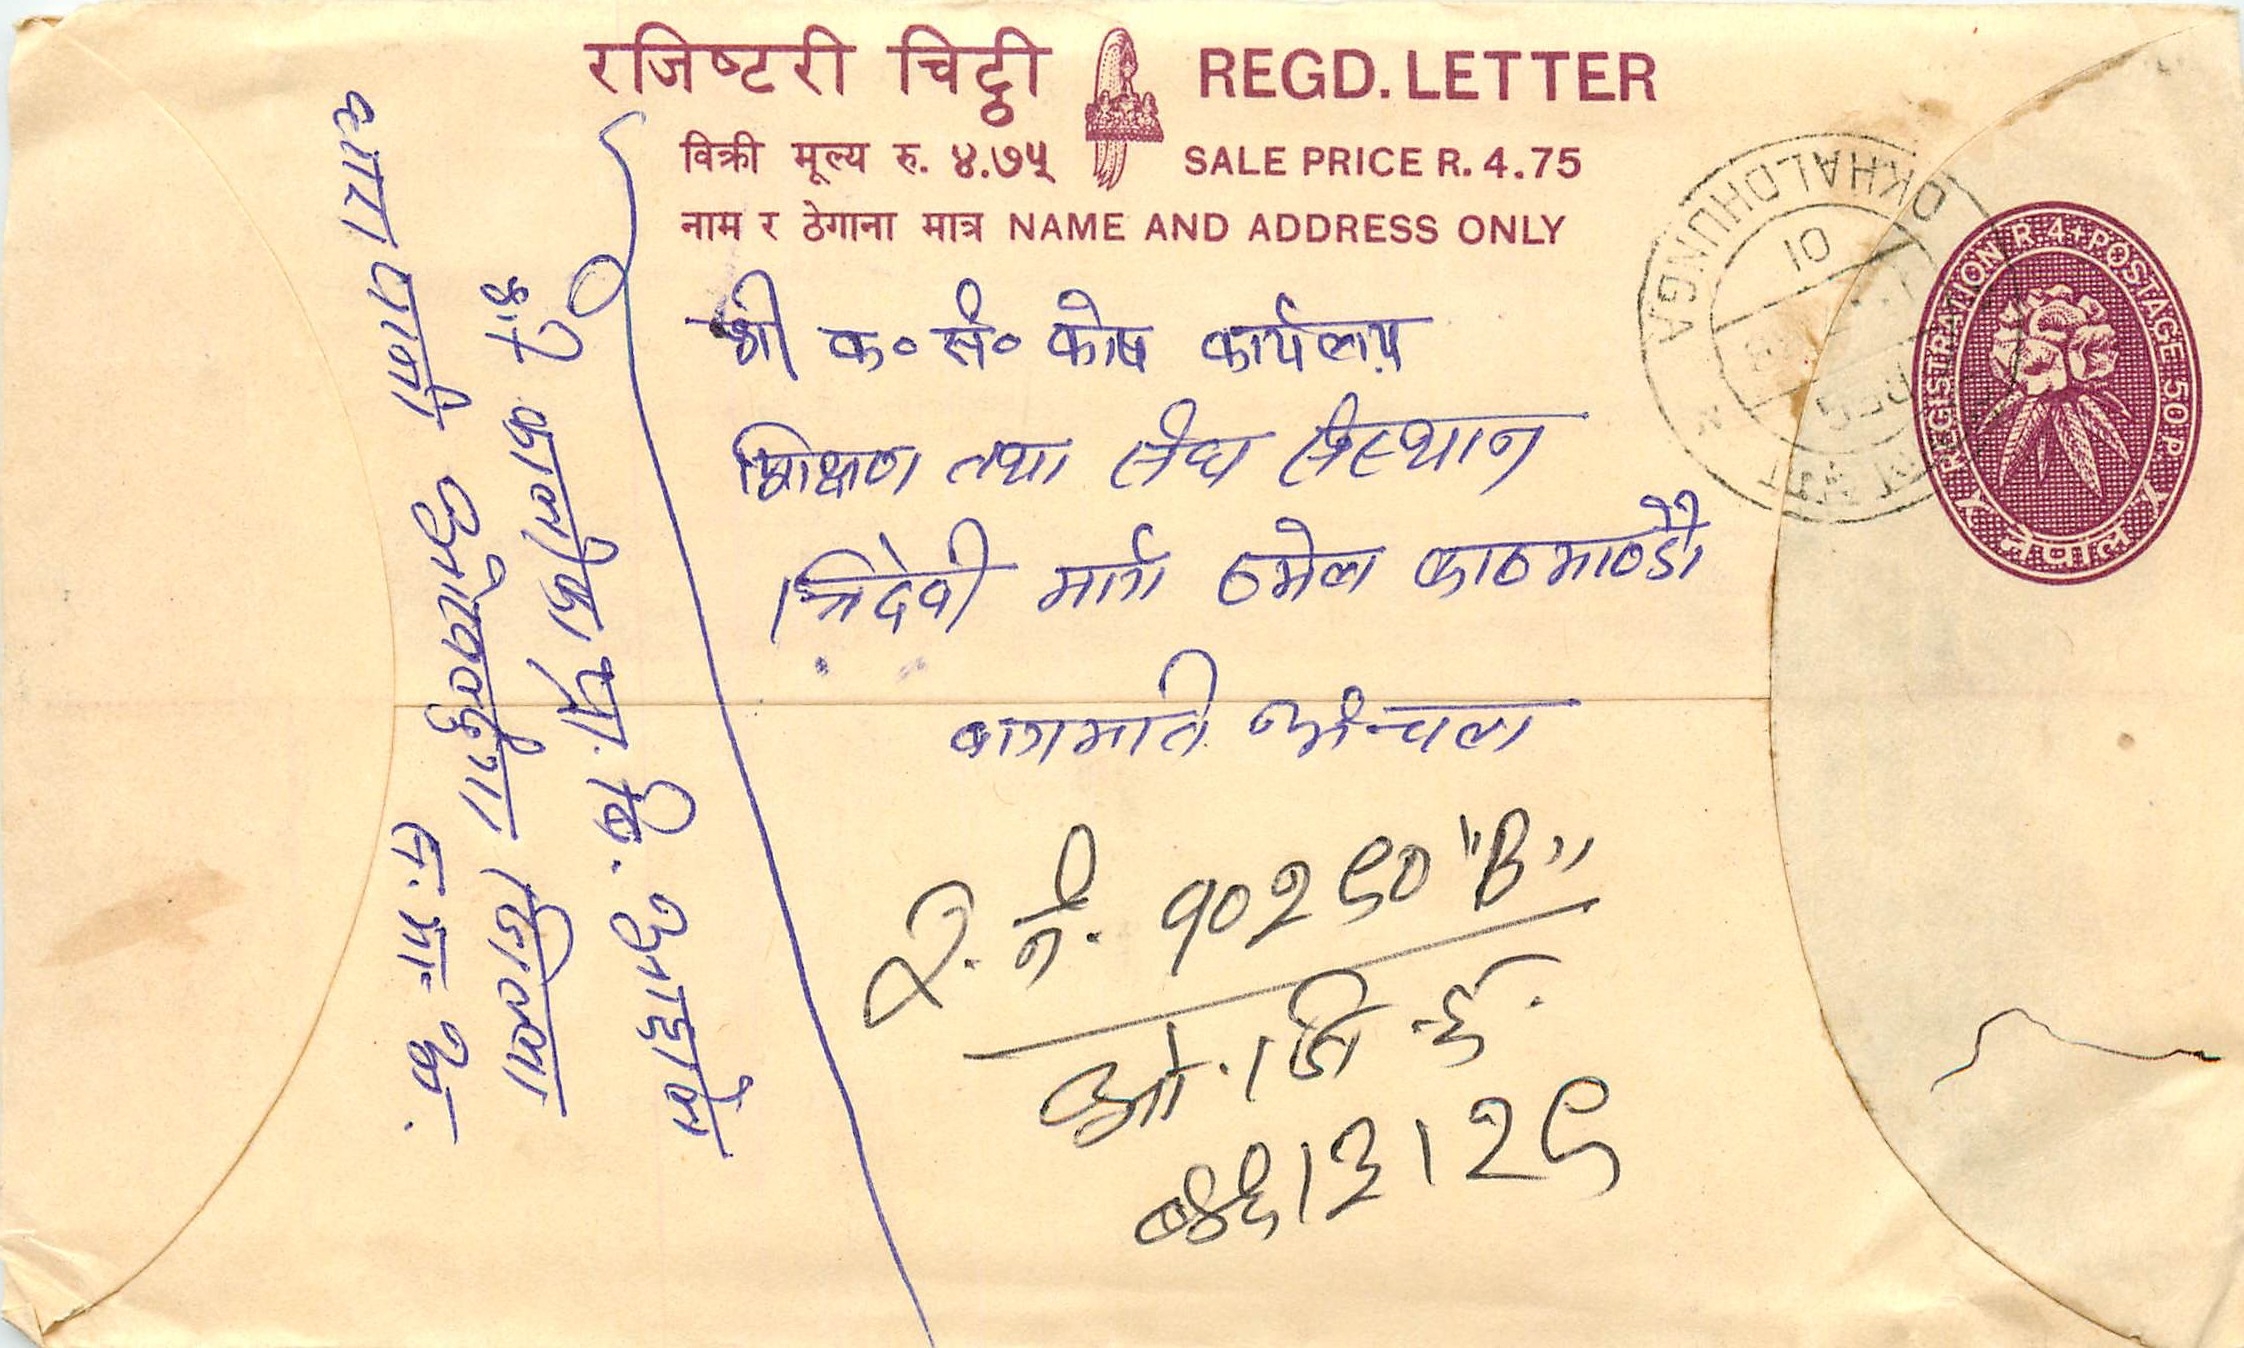 रजिष्टरी चिट्ठी REGD. LETTER
विक्री मूल्य रु. ४.७५ SALE PRICE R. 4.75
नाम र ठेगाना मात्र NAME AND ADDRESS ONLY
श्री क० सं० कोष कार्यलय
शिक्षण तथा संघ संस्थान
त्रिदेवी मार्ग ठमेल काठमाण्डौ
बागमति अंन्चल
र. नं. १०२९० "B"
ओ. जि ई.
४६।३।२९
श्री कालीका प्रा. वि.
थाना ओखलढुंगा जिल्ला
OKHALDHUNGA
10
REGISTRATION R. 4+POSTAGE 50 P.
नेपाल